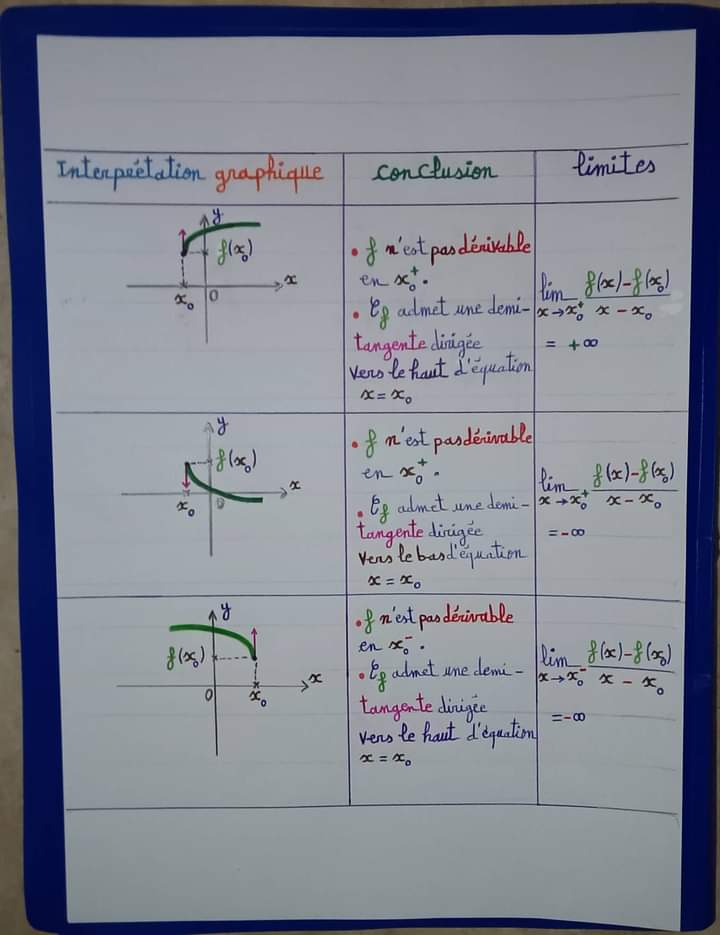 Interpéétation graphique
conclusion
limites
y
f(x₀)
x
x₀
0
• f n'est pas dérivable
en x₀⁺.
• 𝒞f admet une demi-
tangente dirigée
vers le haut d'équation
x = x₀
lim f(x)-f(x₀)
x→x₀⁺ x - x₀
= +∞
y
f(x₀)
x
x₀
0
• f n'est pas dérivable
en x₀⁺.
• 𝒞f admet une demi-
tangente dirigée
vers le bas d'équation
x = x₀
lim f(x)-f(x₀)
x→x₀⁺ x - x₀
= -∞
y
f(x₀)
x
0
x₀
• f n'est pas dérivable
en x₀⁻.
• 𝒞f admet une demi-
tangente dirigée
vers le haut d'équation
x = x₀
lim f(x)-f(x₀)
x→x₀⁻ x - x₀
= -∞